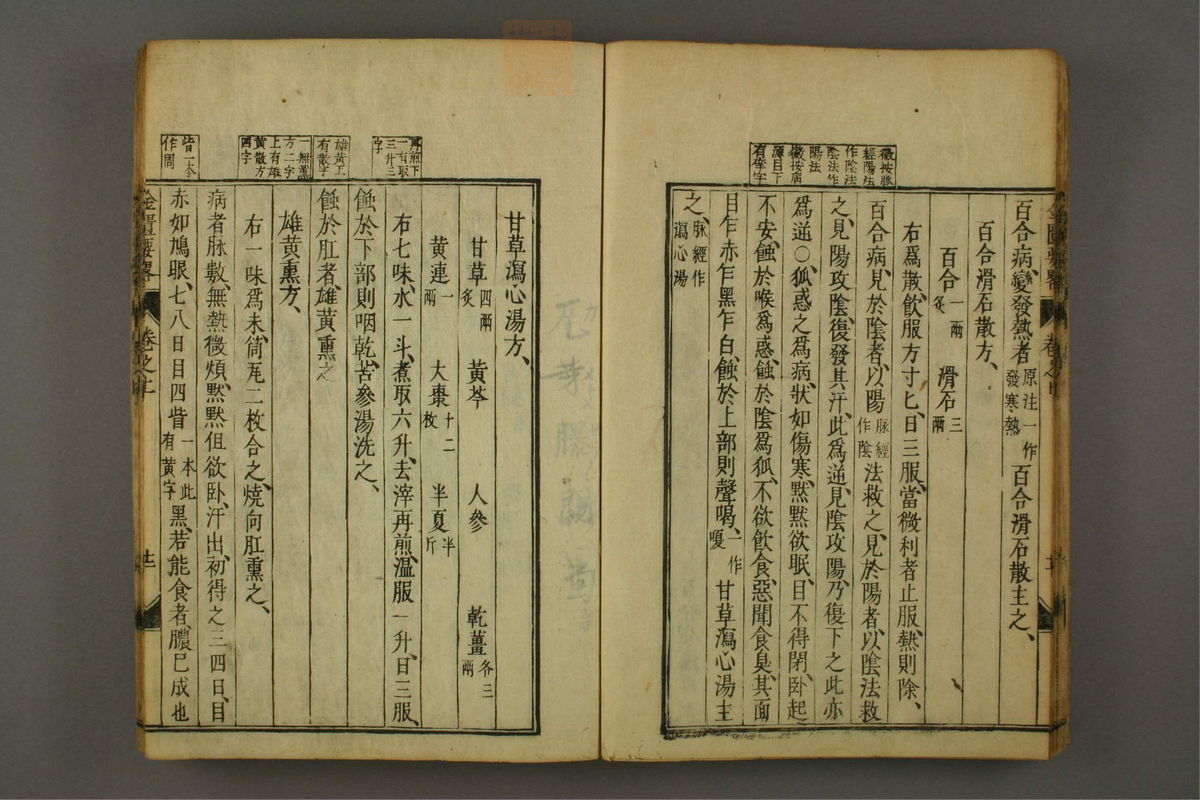 百合病變發熱者原注一作發寒熱百合滑石散主之、
百合滑石散方、
百合一兩炙 滑石三兩
右爲散飲服方寸匕、日三服、當微利者止服、熱則除、
百合病、見於陰者、以陽脉經作陰法救之、見於陽者、以陰法救
之、見陽攻陰、復發其汗、此爲逆、見陰攻陽、乃復下之、此亦
爲逆○狐惑之爲病、狀如傷寒、默默欲眠、目不得閉、卧起
不安、蝕於喉爲惑、蝕於陰爲狐、不欲飲食、惡聞食臭、其面
目乍赤乍黑乍白、蝕於上部則聲喝、一作嗄甘草瀉心湯主
之、脉經作瀉心湯
微按脉
經陽法
作陰法
陰法作
陽法
微按病
源目下
有眥字
卷之上
甘草瀉心湯方、
甘草四兩炙 黄芩 人參 乾薑各三兩
黄連一兩 大棗十二枚 半夏半斤
右七味、水一斗、煮取六升、去滓再煎、温服一升、日三服、
蝕於下部則咽乾、苦參湯洗之、
蝕於肛者、雄黄熏之
雄黄熏方、
右一味爲末、筒瓦二枚合之、燒向肛熏之、
病者脉數、無熱微煩、默默但欲卧、汗出、初得之三四日、目
赤如鳩眼、七八日目四眥一本此有黄字黑、若能食者、膿已成也
再煎下
一有取
三升三
字
雄黄下
有散字
一無熏
方二字
上有雄
黄散方
四字
眥一本
作周
金匱要畧
卷之上